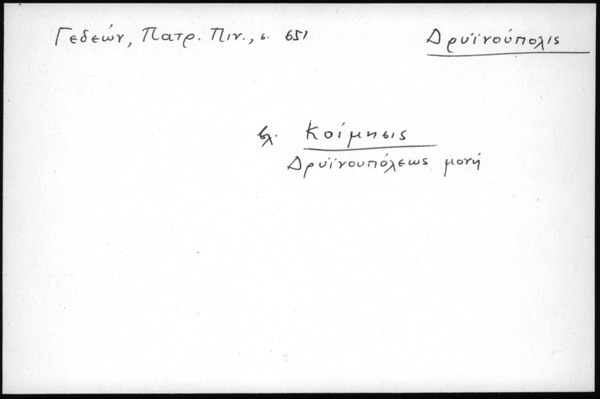 Γεδεών, Πατρ. Πιν., σ. 651
Δρυϊνούπολις
βλ. Κοίμησις
Δρυϊνουπόλεως μονή